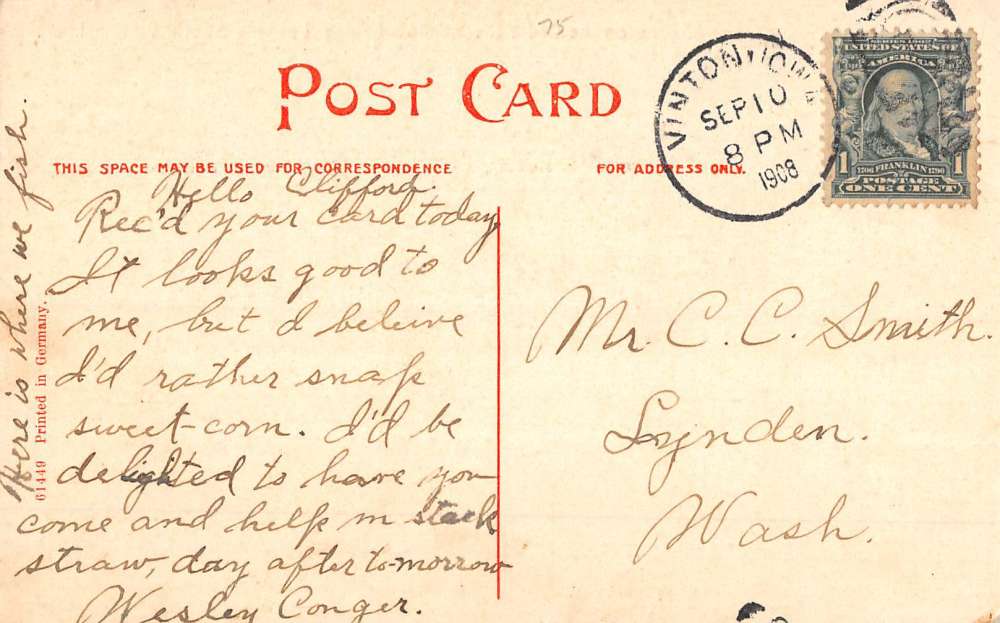 75
POST CARD
THIS SPACE MAY BE USED FOR CORRESPONDENCE
FOR ADDRESS ONLY.
VINTON, IOWA
SEP 10
8 PM
1908
SERIES 1902
UNITED STATES OF
AMERICA
1 FRANKLIN 1
1706 1790
POSTAGE
ONE CENT
Hello Clifford.
Rec'd your card today
It looks good to
me, but I beleive
I'd rather snap
sweet-corn. I'd be
delighted to have you
come and help m stack
straw, day after to-morrow
Wesley Conger.
Here is where we fish.
61449 Printed in Germany.
Mr. C. C. Smith.
Lynden.
Wash.